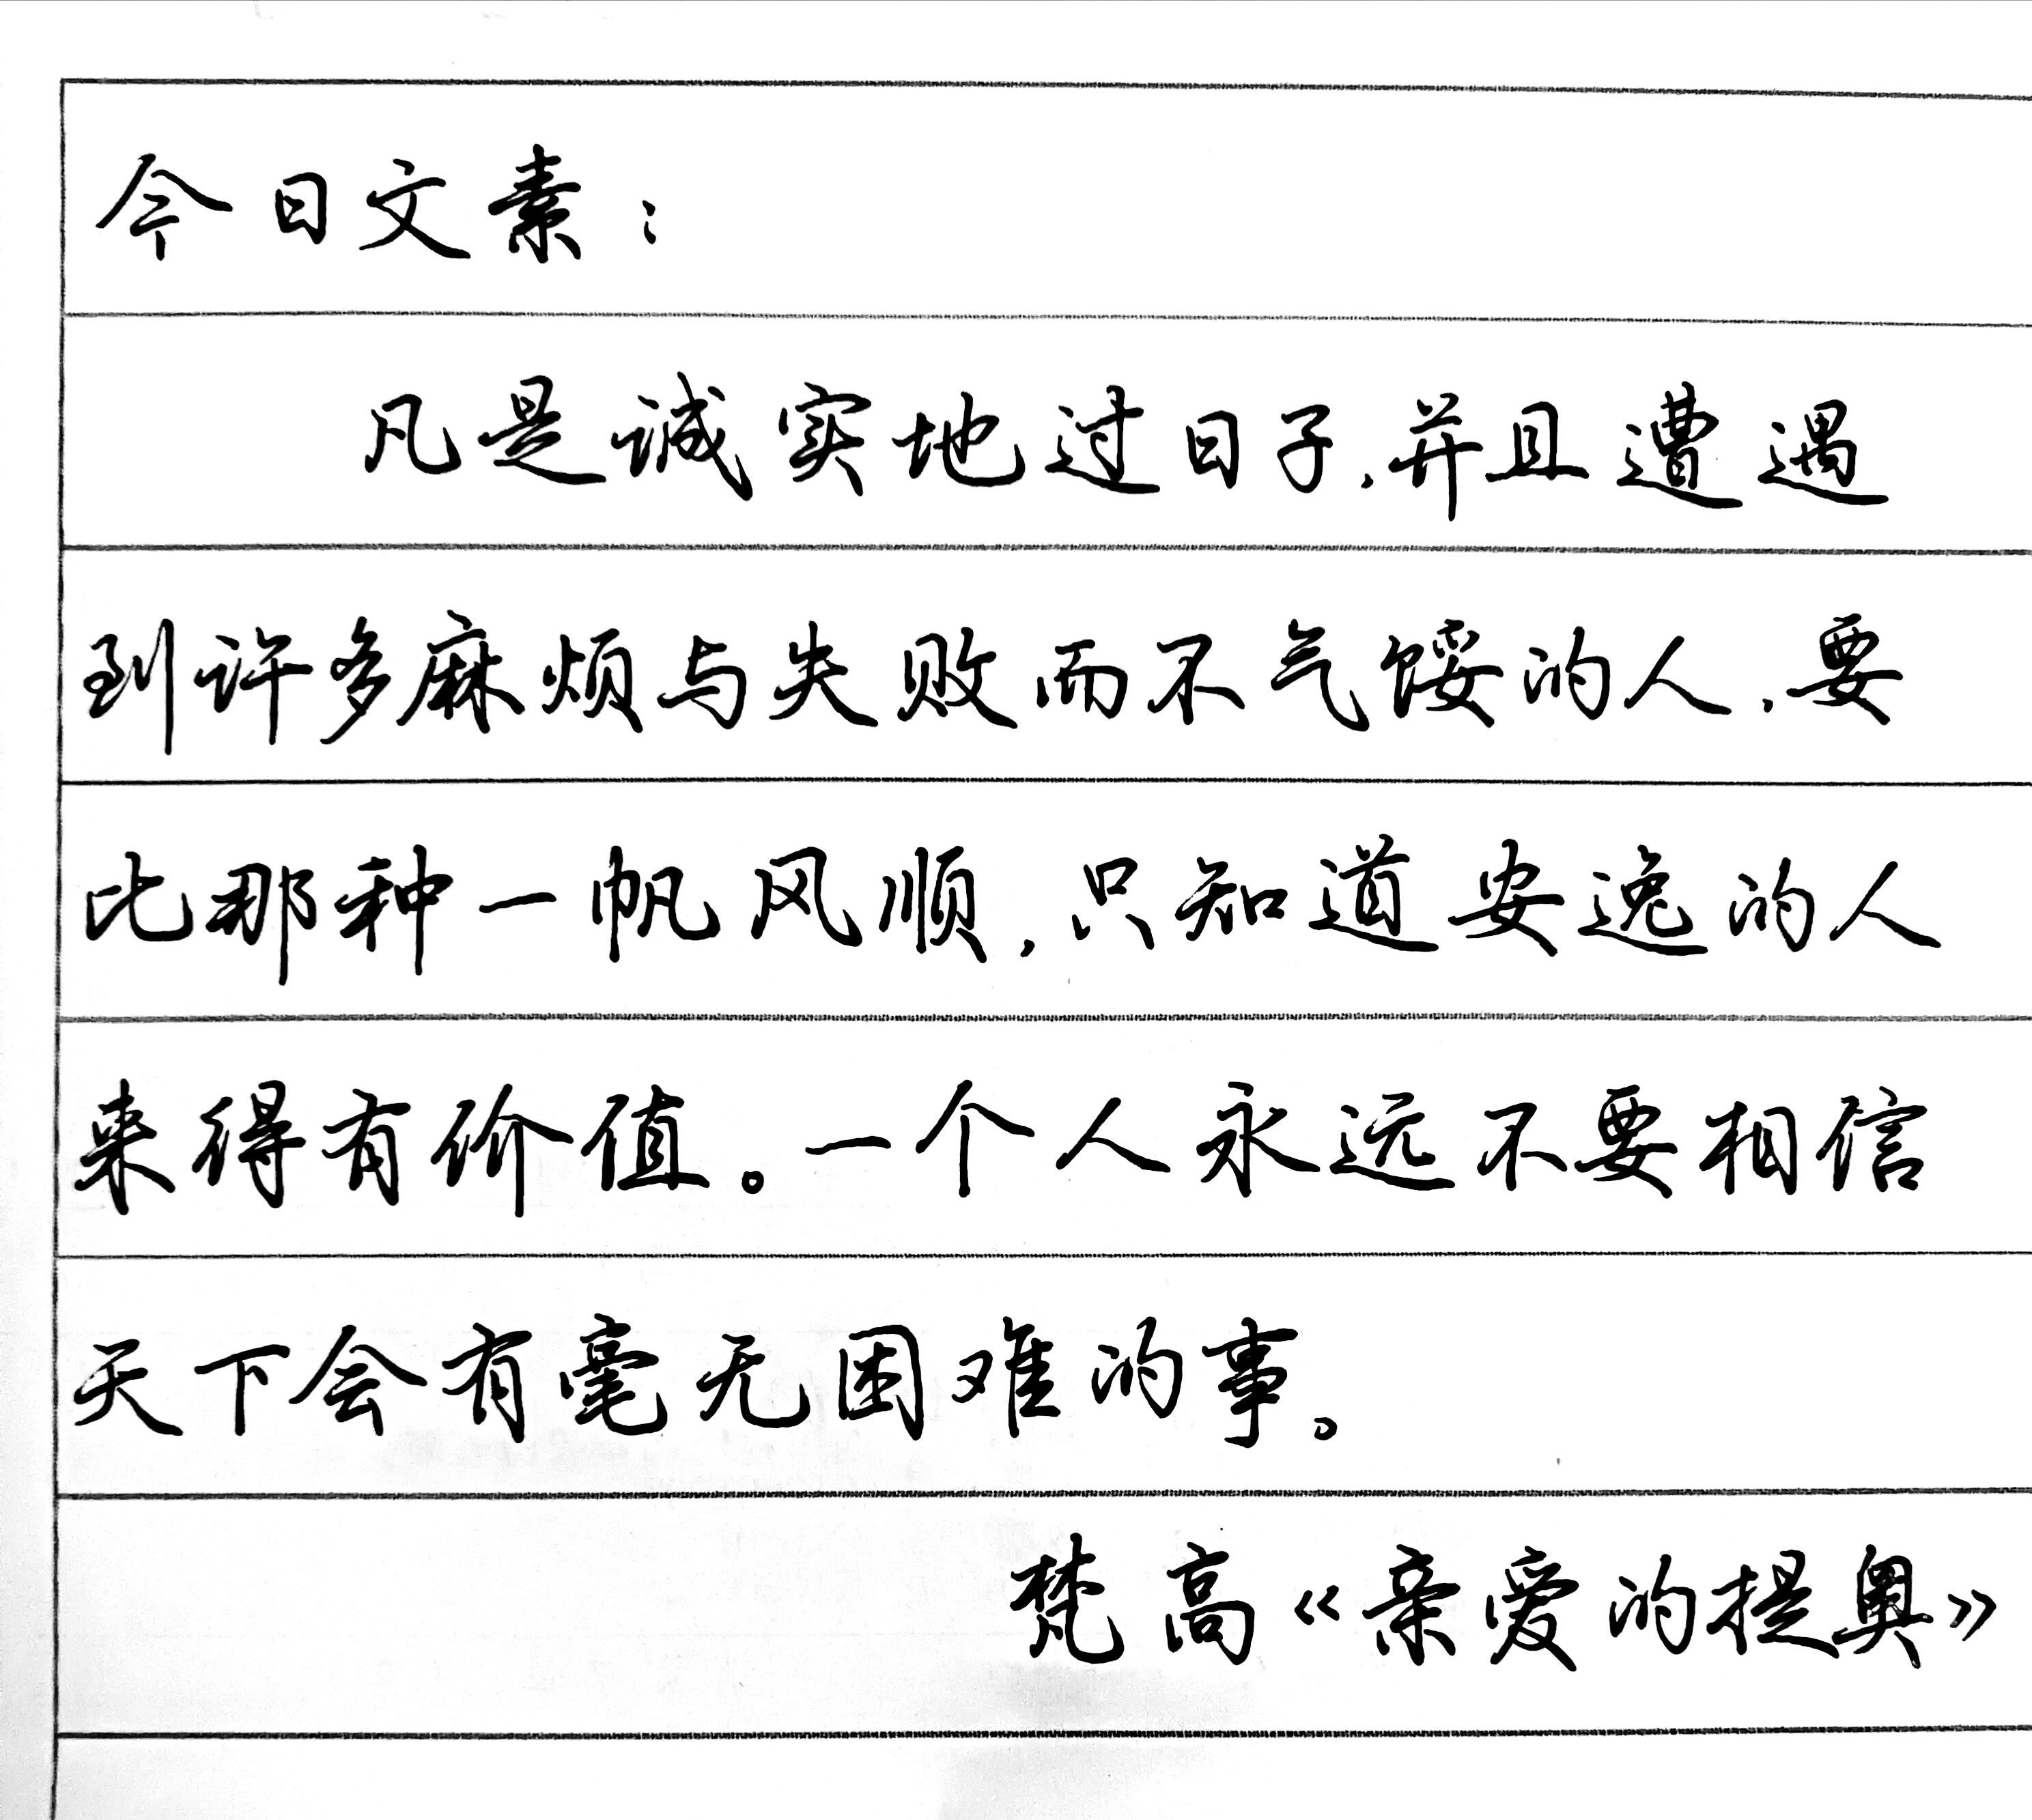 今日文素：
凡是诚实地过日子，并且遭遇
到许多麻烦与失败而不气馁的人，要
比那种一帆风顺，只知道安逸的人
来得有价值。一个人永远不要相信
天下会有毫无困难的事。
梵高《亲爱的提奥》